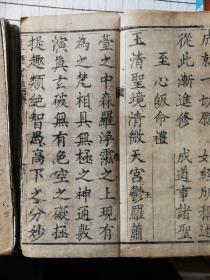 從此漸進修　成道事諸聖
至心皈命禮
玉清聖境清微天宮鬱羅蕭
臺之中森羅淨泓之上現有
為之梵相具無極之神通敷
演真玄破無有色空之礙拯
提趣類絕智愚高下之分妙